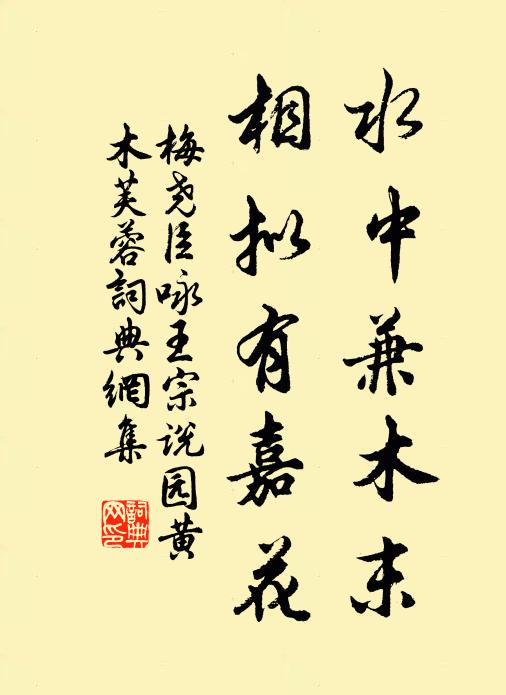 水中兼木末
相拟有嘉花
梅尧臣咏王宗说园黄
木芙蓉词典網集
詞典網印